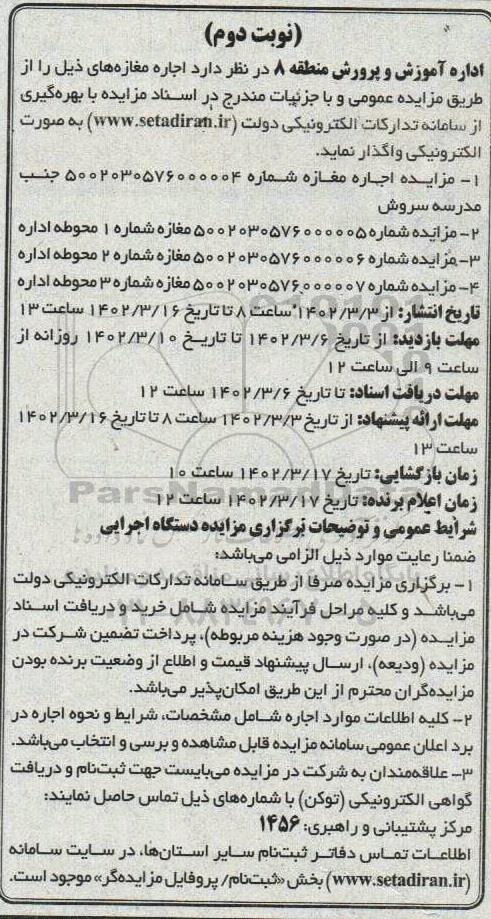 (نوبت دوم)
اداره آموزش و پرورش منطقه ۸ در نظر دارد اجاره مغازه‌های ذیل را از
طریق مزایده عمومی و با جزئیات مندرج در اسناد مزایده با بهره‌گیری
از سامانه تدارکات الکترونیکی دولت (www.setadiran.ir) به صورت
الکترونیکی واگذار نماید.
۱- مزایده اجاره مغازه شماره ۵۰۰۲۰۳۰۵۷۶۰۰۰۰۰۴ جنب
مدرسه سروش
۲- مزایده شماره ۵۰۰۲۰۳۰۵۷۶۰۰۰۰۰۵ مغازه شماره ۱ محوطه اداره
۳- مزایده شماره ۵۰۰۲۰۳۰۵۷۶۰۰۰۰۰۶ مغازه شماره ۲ محوطه اداره
۴- مزایده شماره ۵۰۰۲۰۳۰۵۷۶۰۰۰۰۰۷ مغازه شماره ۳ محوطه اداره
تاریخ انتشار: از ۱۴۰۲/۳/۳ ساعت ۸ تا تاریخ ۱۴۰۲/۳/۱۶ ساعت ۱۳
مهلت بازدید: از تاریخ ۱۴۰۲/۳/۶ تا تاریخ ۱۴۰۲/۳/۱۰ روزانه از
ساعت ۹ الی ساعت ۱۲
مهلت دریافت اسناد: تا تاریخ ۱۴۰۲/۳/۶ ساعت ۱۲
مهلت ارائه پیشنهاد: از تاریخ ۱۴۰۲/۳/۳ ساعت ۸ تا تاریخ ۱۴۰۲/۳/۱۶
ساعت ۱۳
زمان بازگشایی: تاریخ ۱۴۰۲/۳/۱۷ ساعت ۱۰
زمان اعلام برنده: تاریخ ۱۴۰۲/۳/۱۷ ساعت ۱۲
شرایط عمومی و توضیحات برگزاری مزایده دستگاه اجرایی
ضمنا رعایت موارد ذیل الزامی می‌باشد:
۱- برگزاری مزایده صرفا از طریق سامانه تدارکات الکترونیکی دولت
می‌باشد و کلیه مراحل فرآیند مزایده شامل خرید و دریافت اسناد
مزایده (در صورت وجود هزینه مربوطه)، پرداخت تضمین شرکت در
مزایده (ودیعه)، ارسال پیشنهاد قیمت و اطلاع از وضعیت برنده بودن
مزایده‌گران محترم از این طریق امکان‌پذیر می‌باشد.
۲- کلیه اطلاعات موارد اجاره شامل مشخصات، شرایط و نحوه اجاره در
برد اعلان عمومی سامانه مزایده قابل مشاهده و برسی و انتخاب می‌باشد.
۳- علاقه‌مندان به شرکت در مزایده می‌بایست جهت ثبت‌نام و دریافت
گواهی الکترونیکی (توکن) با شماره‌های ذیل تماس حاصل نمایند:
مرکز پشتیبانی و راهبری: ۱۴۵۶
اطلاعات تماس دفاتر ثبت‌نام سایر استان‌ها، در سایت سامانه
(www.setadiran.ir) بخش «ثبت‌نام/ پروفایل مزایده‌گر» موجود است.